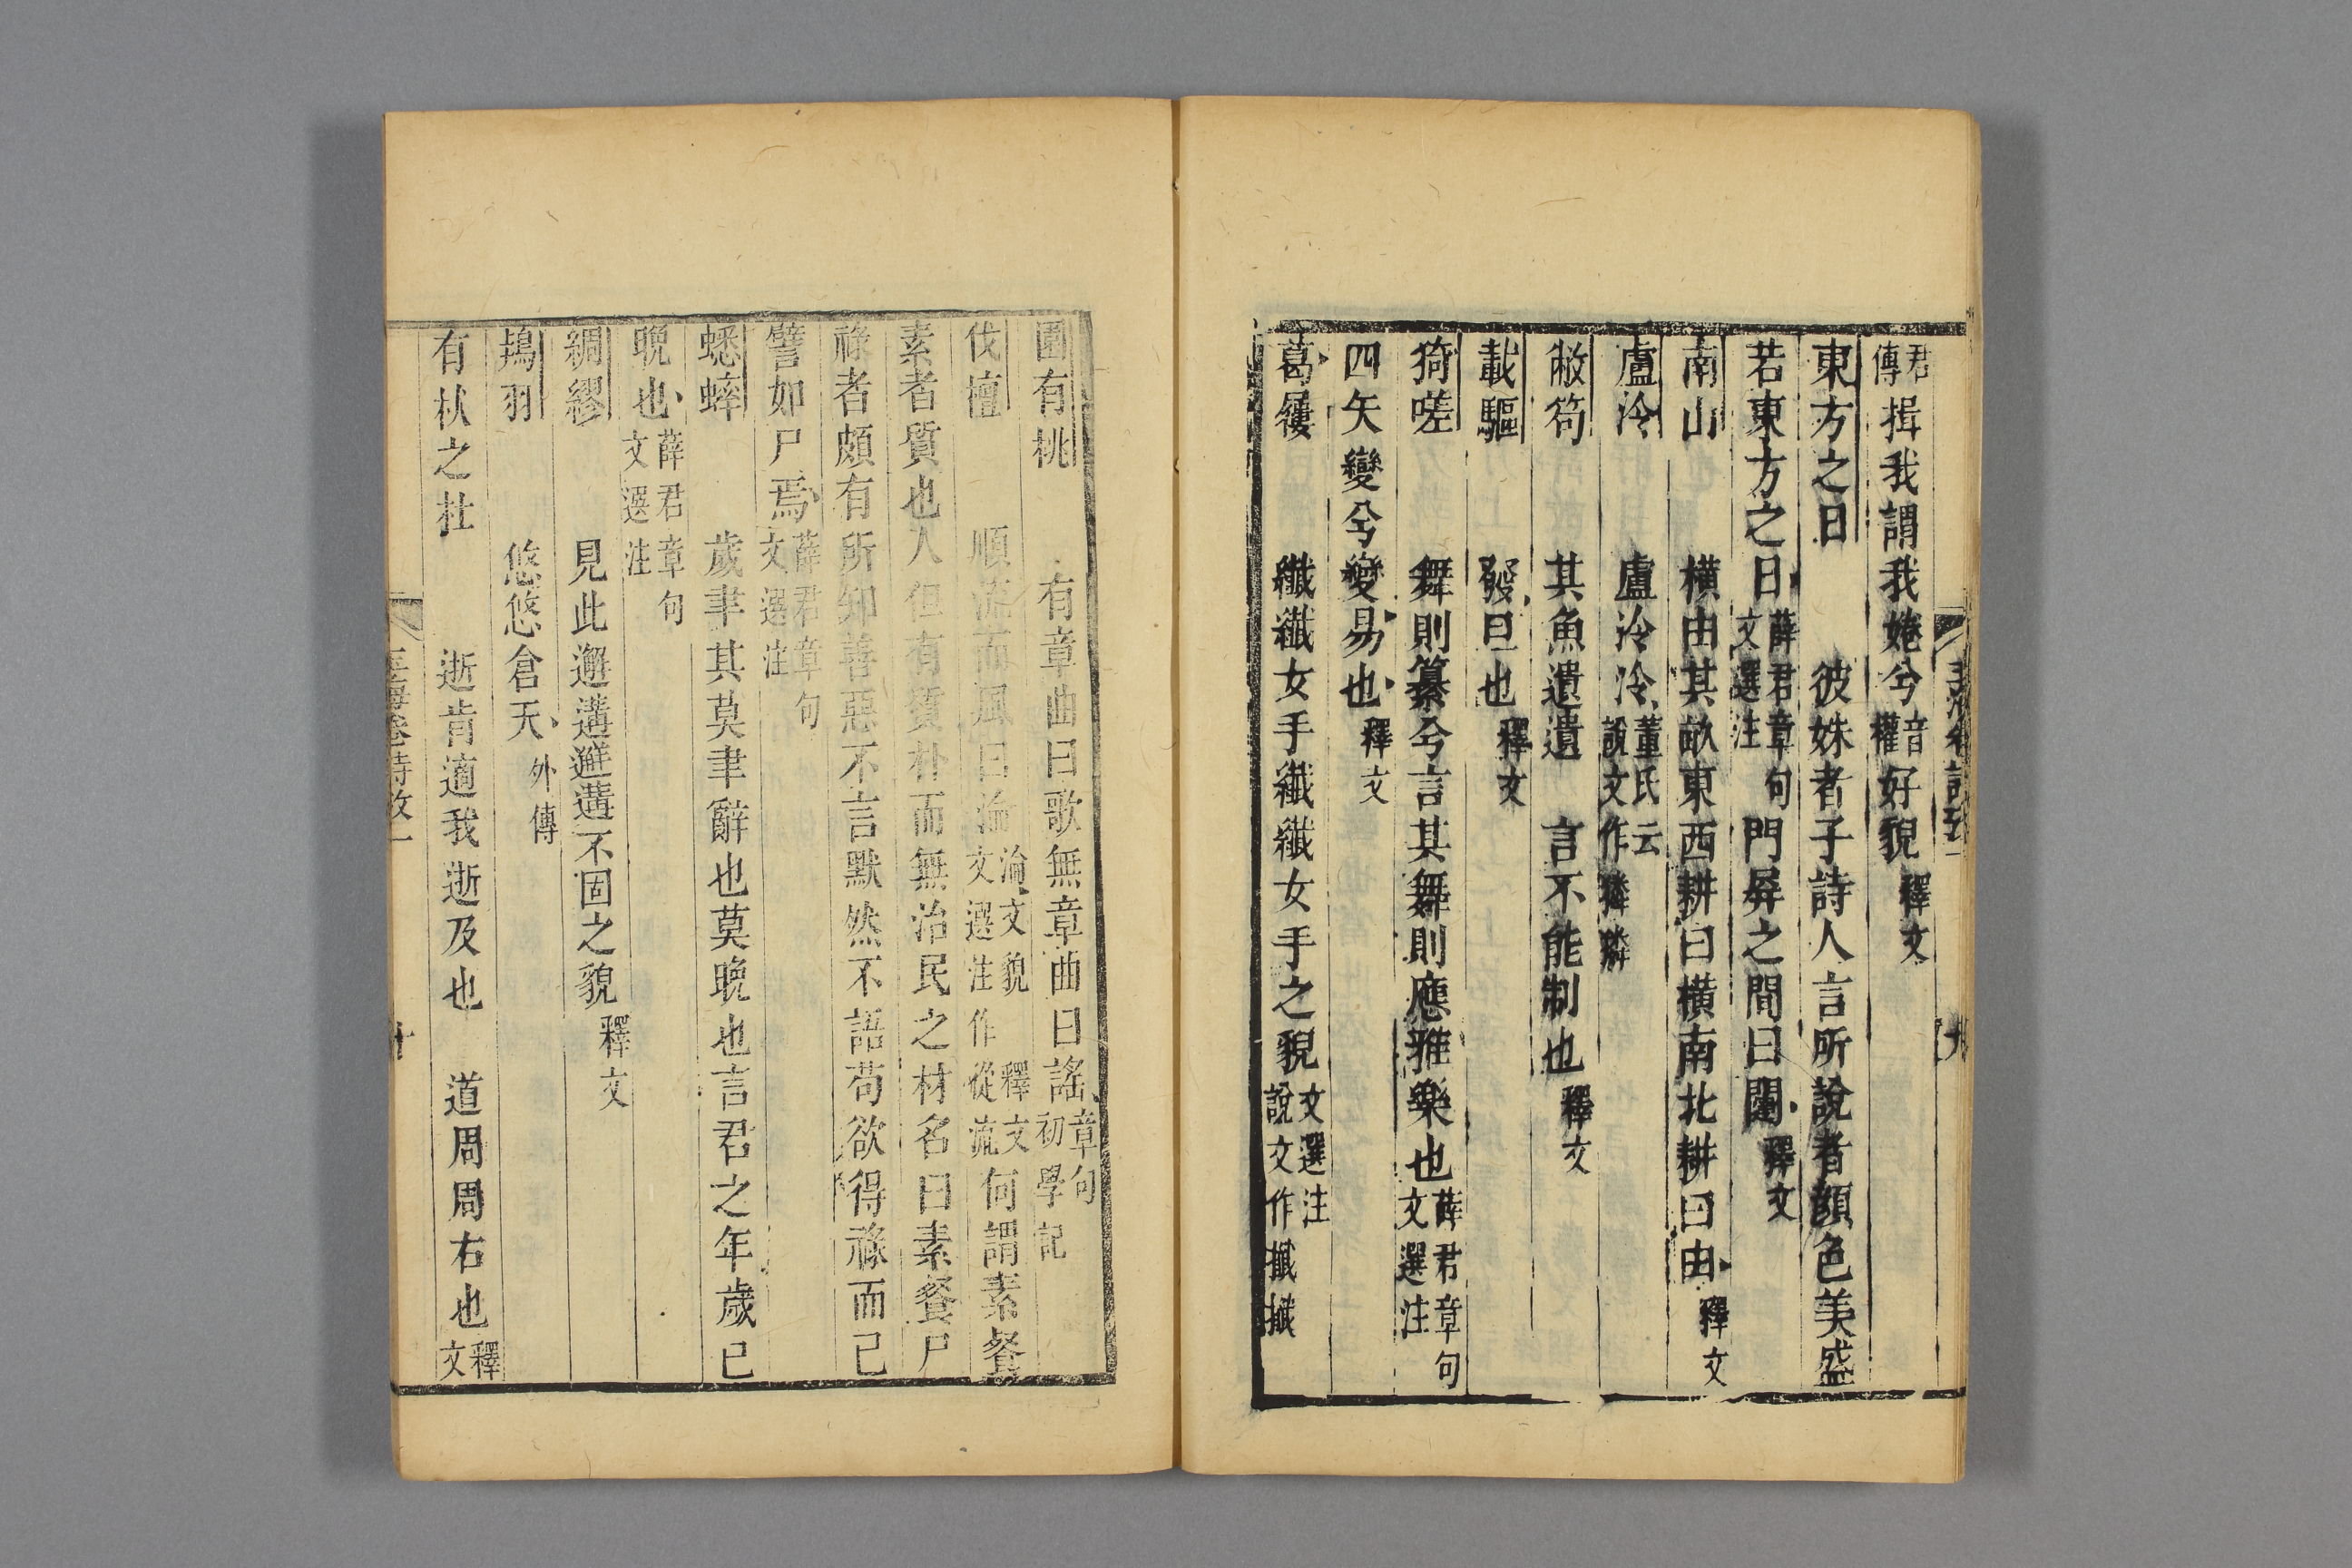 君傳揖我謂我婘兮音權好貌釋文
東方之日　彼姝者子詩人言所說者顏色美盛
若東方之日薛君章句文選注門屏之間曰闥釋文
南山　橫由其畝東西耕曰橫南北耕曰由釋文
盧泠　盧泠泠董氏云說文作獜獜
敝笱　其魚遺遺　言不能制也釋文
載驅　發旦也釋文
猗嗟　舞則纂兮言其舞則應雅樂也薛君章句文選注
四矢變兮變易也釋文
葛屨　纖纖女手纖纖女手之貌文選注說文作攕攕
園有桃　有章曲曰歌無章曲曰謠章句初學記
伐檀　順流而風曰淪淪文貌文選注釋文作從流何謂素餐
素者質也人但有質朴而無治民之材名曰素餐尸
祿者頗有所知善惡不言默然不語苟欲得祿而已
譬如尸焉薛君章句文選注
蟋蟀　歲聿其莫聿辭也莫晚也言君之年歲已
晚也薛君章句文選注
綢繆　見此邂遘邂遘不固之貌釋文
鴇羽　悠悠倉天外傳
有杕之杜　逝肯適我逝及也　道周周右也釋文
王海卷詩攷一　十